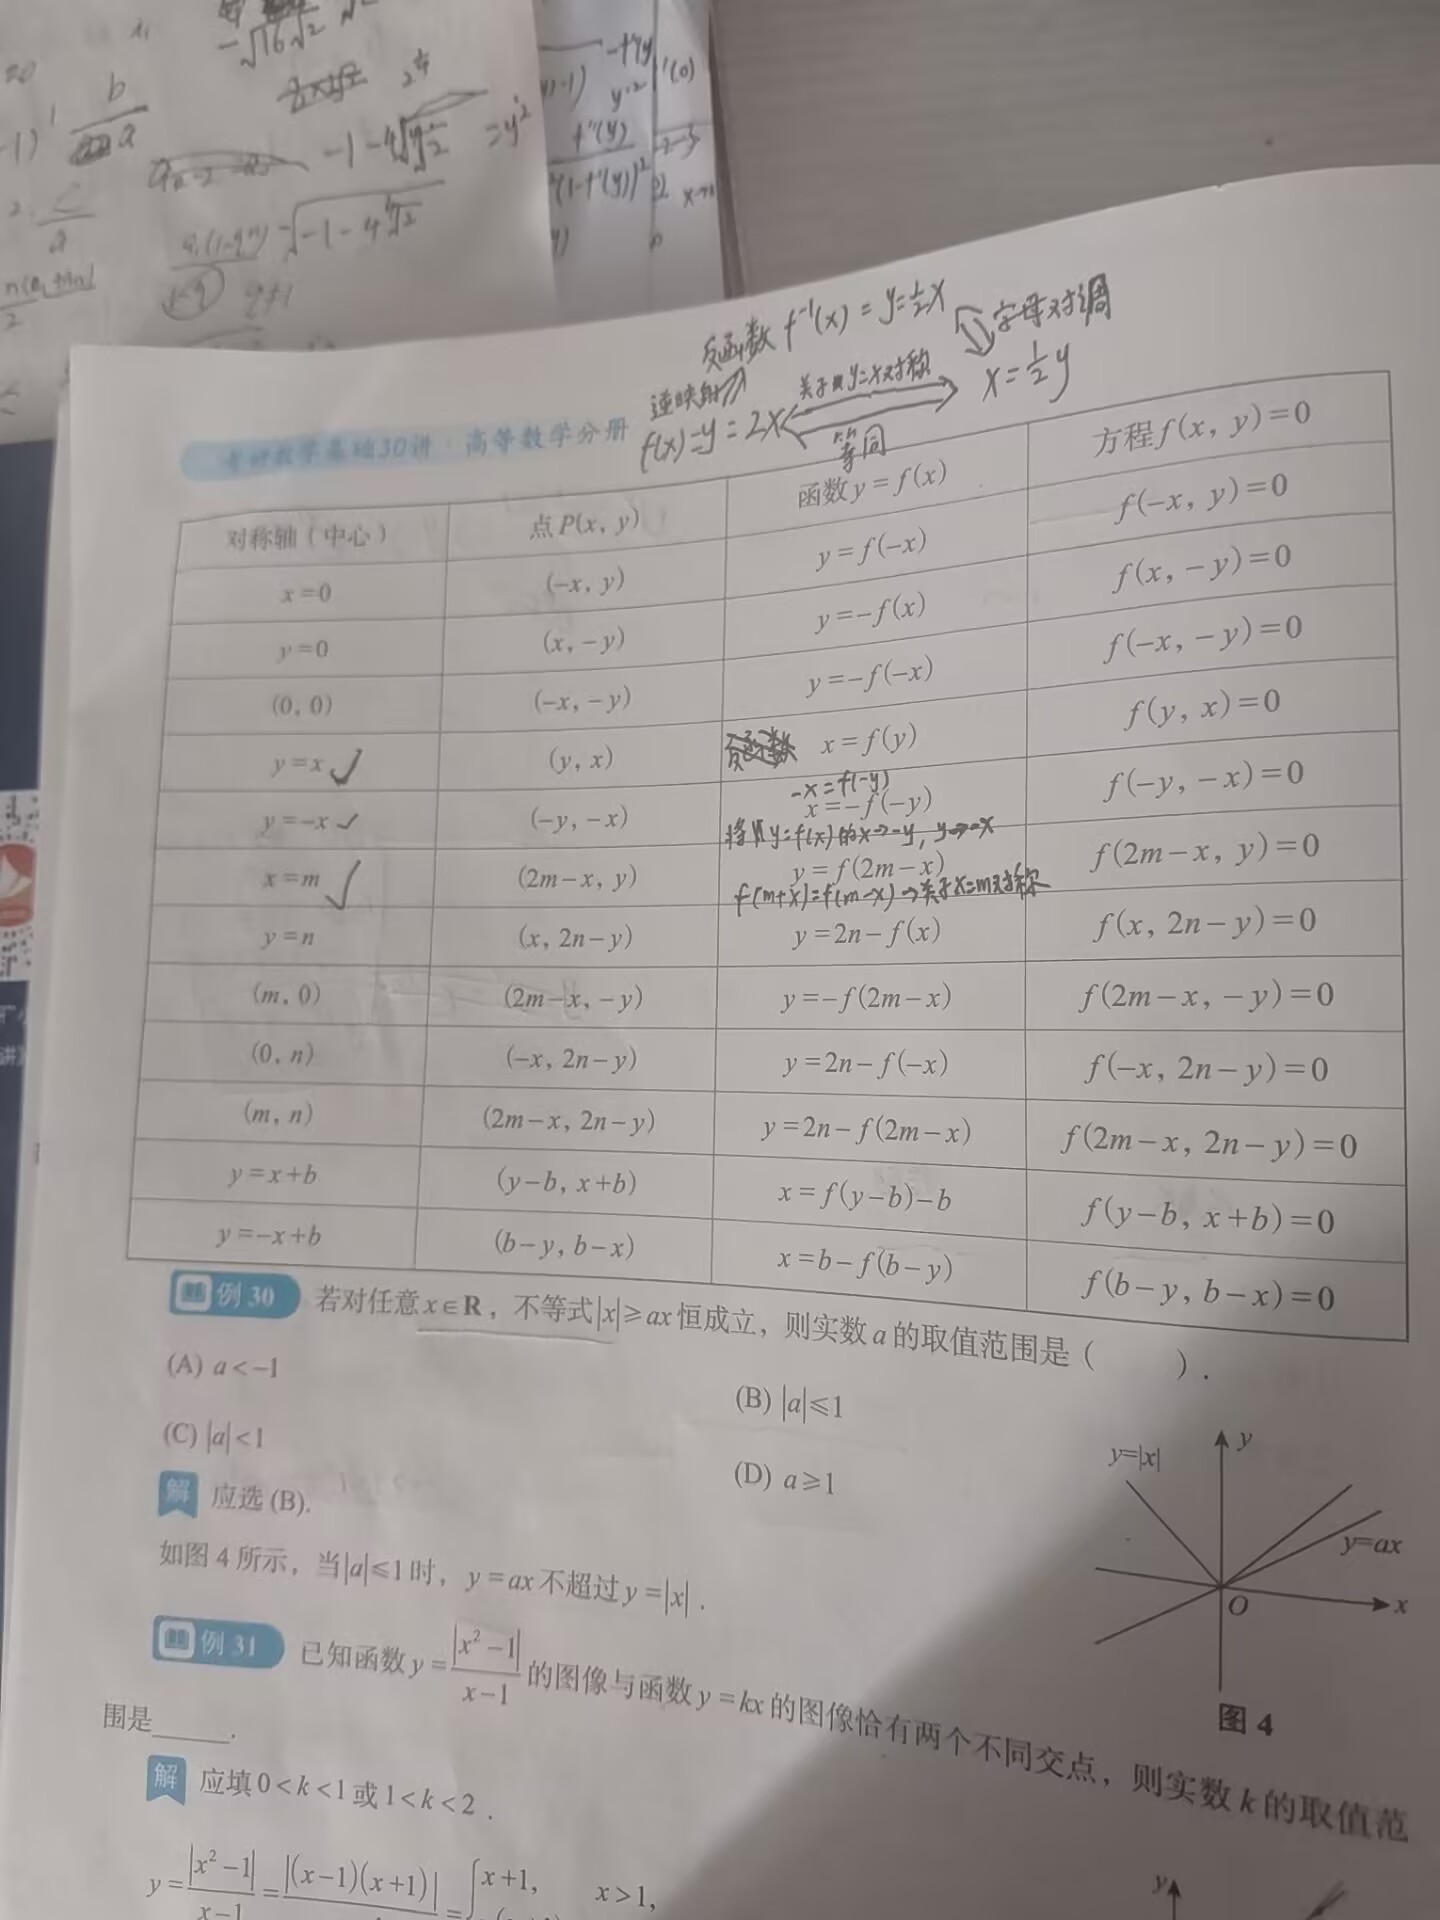 -√16√2
2^{1/4}
b
a
-1)
-1-4
=y²
c
a
a₁(1-qⁿ)
1-q
q≠1
√-1-4
2
y'²
f''(y)
'(0)
(1-f'(y))²
反函数 f⁻¹(x)=y=½x
字母对调
逆映射
关于y=x对称
x=½y
f(x)=y=2x
等同
考研数学基础30讲·高等数学分册
对称轴(中心) 点P(x, y) 函数y=f(x) 方程f(x, y)=0
x=0 (-x, y) y=f(-x) f(-x, y)=0
y=0 (x, -y) y=-f(x) f(x, -y)=0
(0, 0) (-x, -y) y=-f(-x) f(-x, -y)=0
y=x ✓ (y, x) 反函数 x=f(y) f(y, x)=0
-x=f(-y)
y=-x ✓ (-y, -x) x=-f(-y) f(-y, -x)=0
y=f(x)的x→-y, y→-x
x=m ✓ (2m-x, y) y=f(2m-x) f(2m-x, y)=0
f(m+x)=f(m-x)→关于x=m对称
y=n (x, 2n-y) y=2n-f(x) f(x, 2n-y)=0
(m, 0) (2m-x, -y) y=-f(2m-x) f(2m-x, -y)=0
(0, n) (-x, 2n-y) y=2n-f(-x) f(-x, 2n-y)=0
(m, n) (2m-x, 2n-y) y=2n-f(2m-x) f(2m-x, 2n-y)=0
y=x+b (y-b, x+b) x=f(y-b)-b f(y-b, x+b)=0
y=-x+b (b-y, b-x) x=b-f(b-y) f(b-y, b-x)=0
例30 若对任意x∈R，不等式|x|≥ax恒成立，则实数a的取值范围是( ).
(A) a<-1 (B) |a|≤1
(C) |a|<1 (D) a≥1
解 应选(B).
如图4所示，当|a|≤1时，y=ax不超过y=|x|.
y=|x|
y
y=ax
O
x
图4
例31 已知函数y=|x²-1|/(x-1)的图像与函数y=kx的图像恰有两个不同交点，则实数k的取值范
围是______.
解 应填0<k<1或1<k<2.
y=|x²-1|/(x-1)=|(x-1)(x+1)|={x+1, x>1,
y